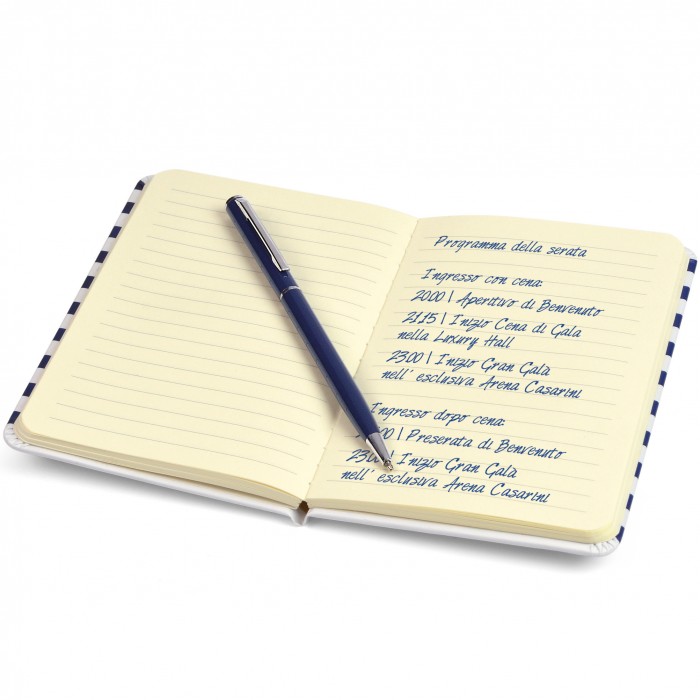 Programma della serata
Ingresso con cena:
2000 | Aperitivo di Benvenuto
2115 | Inizio Cena di Gala
nella Luxury Hall
2300 | Inizio Gran Galà
nell' esclusiva Arena Casarini
Ingresso dopo cena:
00 | Preserata di Benvenuto
2300 | Inizio Gran Galà
nell' esclusiva Arena Casarini